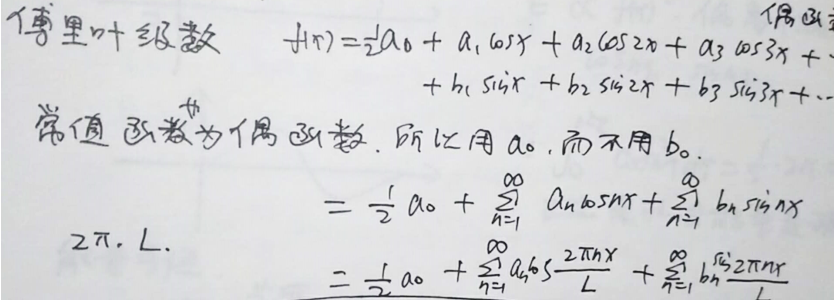 偶函
傅里叶级数 f(x) = 1/2 a₀ + a₁ cosx + a₂ cos2x + a₃ cos3x + ··
+ b₁ sinx + b₂ sin2x + b₃ sin3x + ···
常值函数也为偶函数.所以用 a₀,而不用 b₀.
= 1/2 a₀ + ∑_{n=1}^{∞} aₙ cosnx + ∑_{n=1}^{∞} bₙ sin nx
2π. L.
= 1/2 a₀ + ∑_{n=1}^{∞} aₙ cos 2πnx/L + ∑_{n=1}^{∞} bₙ sin 2πnx/L